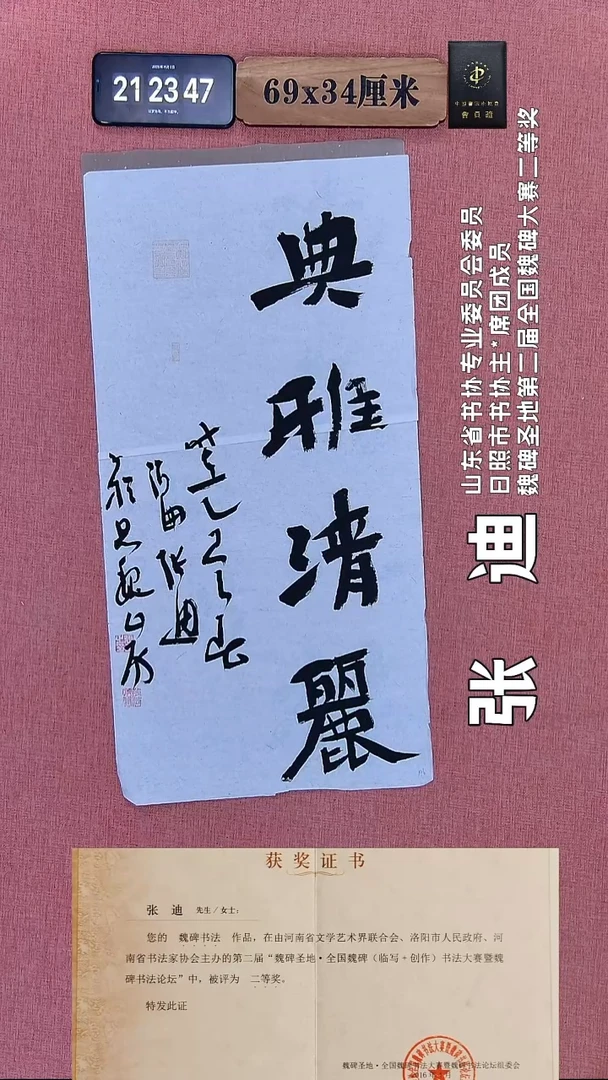 21 23 47
69x34厘米
典雅清麗
山东省书协专业委员会委员
日照市书协主*席团成员
魏碑圣地第二届全国魏碑大赛二等奖
张 迪
获奖证书
张 迪 先生/女士:
您的 魏碑书法 作品，在由河南省文学艺术界联合会、洛阳市人民政府、河
南省书法家协会主办的第二届“魏碑圣地·全国魏碑（临写+创作）书法大赛暨魏
碑书法论坛”中，被评为 二等奖。
特发此证
魏碑圣地·全国魏碑书法大赛暨魏碑书法论坛组委会